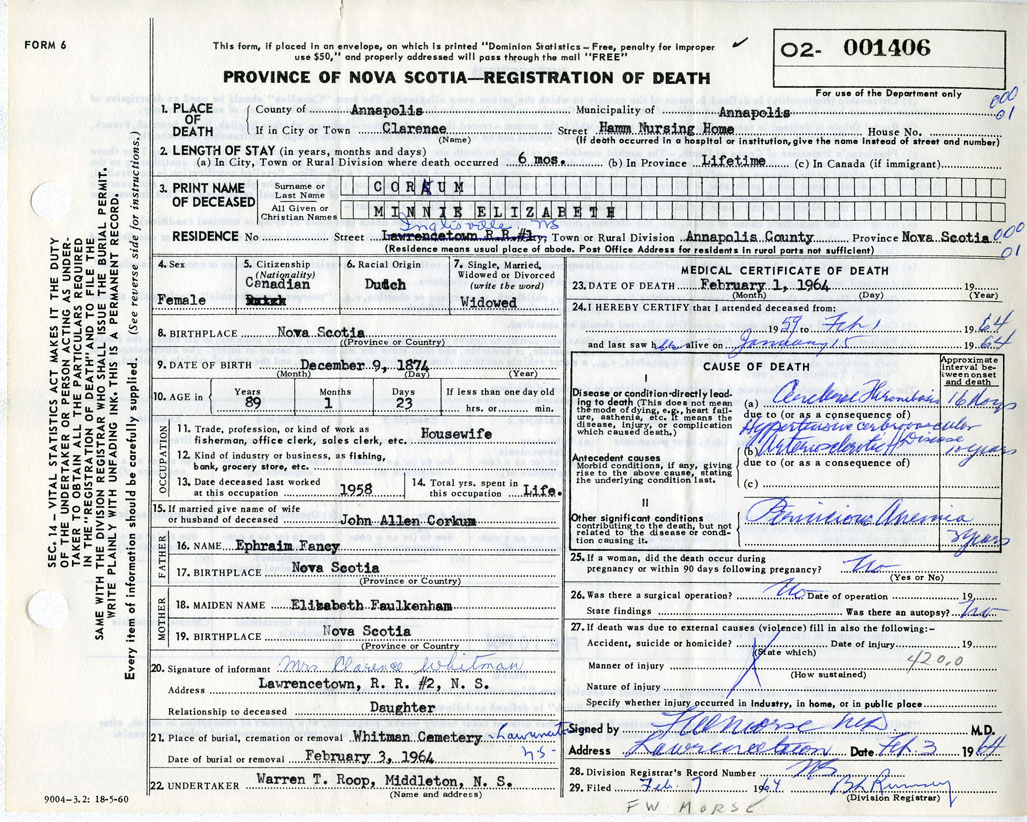 FORM 6
This form, if placed in an envelope, on which is printed "Dominion Statistics – Free, penalty for improper
use $50," and properly addressed will pass through the mail "FREE"
02- 001406
For use of the Department only
PROVINCE OF NOVA SCOTIA—REGISTRATION OF DEATH
000
01
1. PLACE OF DEATH
County of Annapolis Municipality of Annapolis
If in City or Town Clarence Street Hamm Nursing Home House No.
(Name) (If death occurred in a hospital or institution, give the name instead of street and number)
2. LENGTH OF STAY (in years, months and days)
(a) In City, Town or Rural Division where death occurred 6 mos. (b) In Province Lifetime (c) In Canada (if immigrant)
3. PRINT NAME OF DECEASED
Surname or Last Name CORKUM
All Given or Christian Names MINNIE ELIZABETH
Inglisville NS
RESIDENCE No Street Lawrencetown R.R #1, City, Town or Rural Division Annapolis County Province Nova Scotia 000
01
(Residence means usual place of abode. Post Office Address for residents in rural parts not sufficient)
4. Sex
Female
5. Citizenship
(Nationality)
Canadian
6. Racial Origin
Dutch
7. Single, Married, Widowed or Divorced
(write the word)
Widowed
8. BIRTHPLACE Nova Scotia
(Province or Country)
9. DATE OF BIRTH December 9, 1874
(Month) (Day) (Year)
10. AGE in Years 89 Months 1 Days 23 If less than one day old
hrs. or min.
OCCUPATION
11. Trade, profession, or kind of work as
fisherman, office clerk, sales clerk, etc. Housewife
12. Kind of industry or business, as fishing,
bank, grocery store, etc.
13. Date deceased last worked
at this occupation 1958
14. Total yrs. spent in
this occupation Life.
15. If married give name of wife
or husband of deceased John Allen Corkum
FATHER
16. NAME Ephraim Fancy
17. BIRTHPLACE Nova Scotia
(Province or Country)
MOTHER
18. MAIDEN NAME Elizabeth Faulkenham
19. BIRTHPLACE Nova Scotia
(Province or Country
20. Signature of informant Mrs Clarence Whitman
Address Lawrencetown, R. R. #2, N. S.
Relationship to deceased Daughter
21. Place of burial, cremation or removal Whitman Cemetery - Lawrencetown
NS-
Date of burial or removal February 3, 1964
22. UNDERTAKER Warren T. Roop, Middleton, N. S.
(Name and address)
MEDICAL CERTIFICATE OF DEATH
23. DATE OF DEATH February 1, 1964
(Month) (Day) (Year)
24. I HEREBY CERTIFY that I attended deceased from:
1959 to Feb 1 1964
and last saw her alive on January 15 1964
CAUSE OF DEATH
Approximate interval between onset and death
I
Disease or condition directly leading to death (This does not mean
the mode of dying, e.g., heart failure, asthenia, etc. It means the
disease, injury, or complication
which caused death.)
(a) Cerebral Thrombosis 16 Days
due to (or as a consequence of)
Hypertensive cerebrovascular
(b) Arteriosclerotic H Disease 10 years
due to (or as a consequence of)
(c)
Antecedent causes
Morbid conditions, if any, giving
rise to the above cause, stating
the underlying condition last.
II
Other significant conditions
contributing to the death, but not
related to the disease or condition causing it.
Pernicious Anemia
years
25. If a woman, did the death occur during
pregnancy or within 90 days following pregnancy? No
(Yes or No)
26. Was there a surgical operation? No Date of operation 19
State findings Was there an autopsy? No
27. If death was due to external causes (violence) fill in also the following:–
Accident, suicide or homicide? Date of injury 19
(State which)
420.0
Manner of injury
(How sustained)
Nature of injury
Specify whether injury occurred in industry, in home, or in public place
Signed by F W Morse MD M.D.
Address Lawrencetown Date Feb 3 1964
NS
28. Division Registrar's Record Number
29. Filed Feb. 7 1964
(Division Registrar)
F W MORSE
9004-3.2: 18-5-60
SEC. 14 – VITAL STATISTICS ACT MAKES IT THE DUTY
OF THE UNDERTAKER OR PERSON ACTING AS UNDERTAKER TO OBTAIN ALL THE PARTICULARS REQUIRED
IN THE "REGISTRATION OF DEATH" AND TO FILE THE
SAME WITH THE DIVISION REGISTRAR WHO SHALL ISSUE THE BURIAL PERMIT.
WRITE PLAINLY WITH UNFADING INK. THIS IS A PERMANENT RECORD.
Every item of information should be carefully supplied. (See reverse side for instructions.)